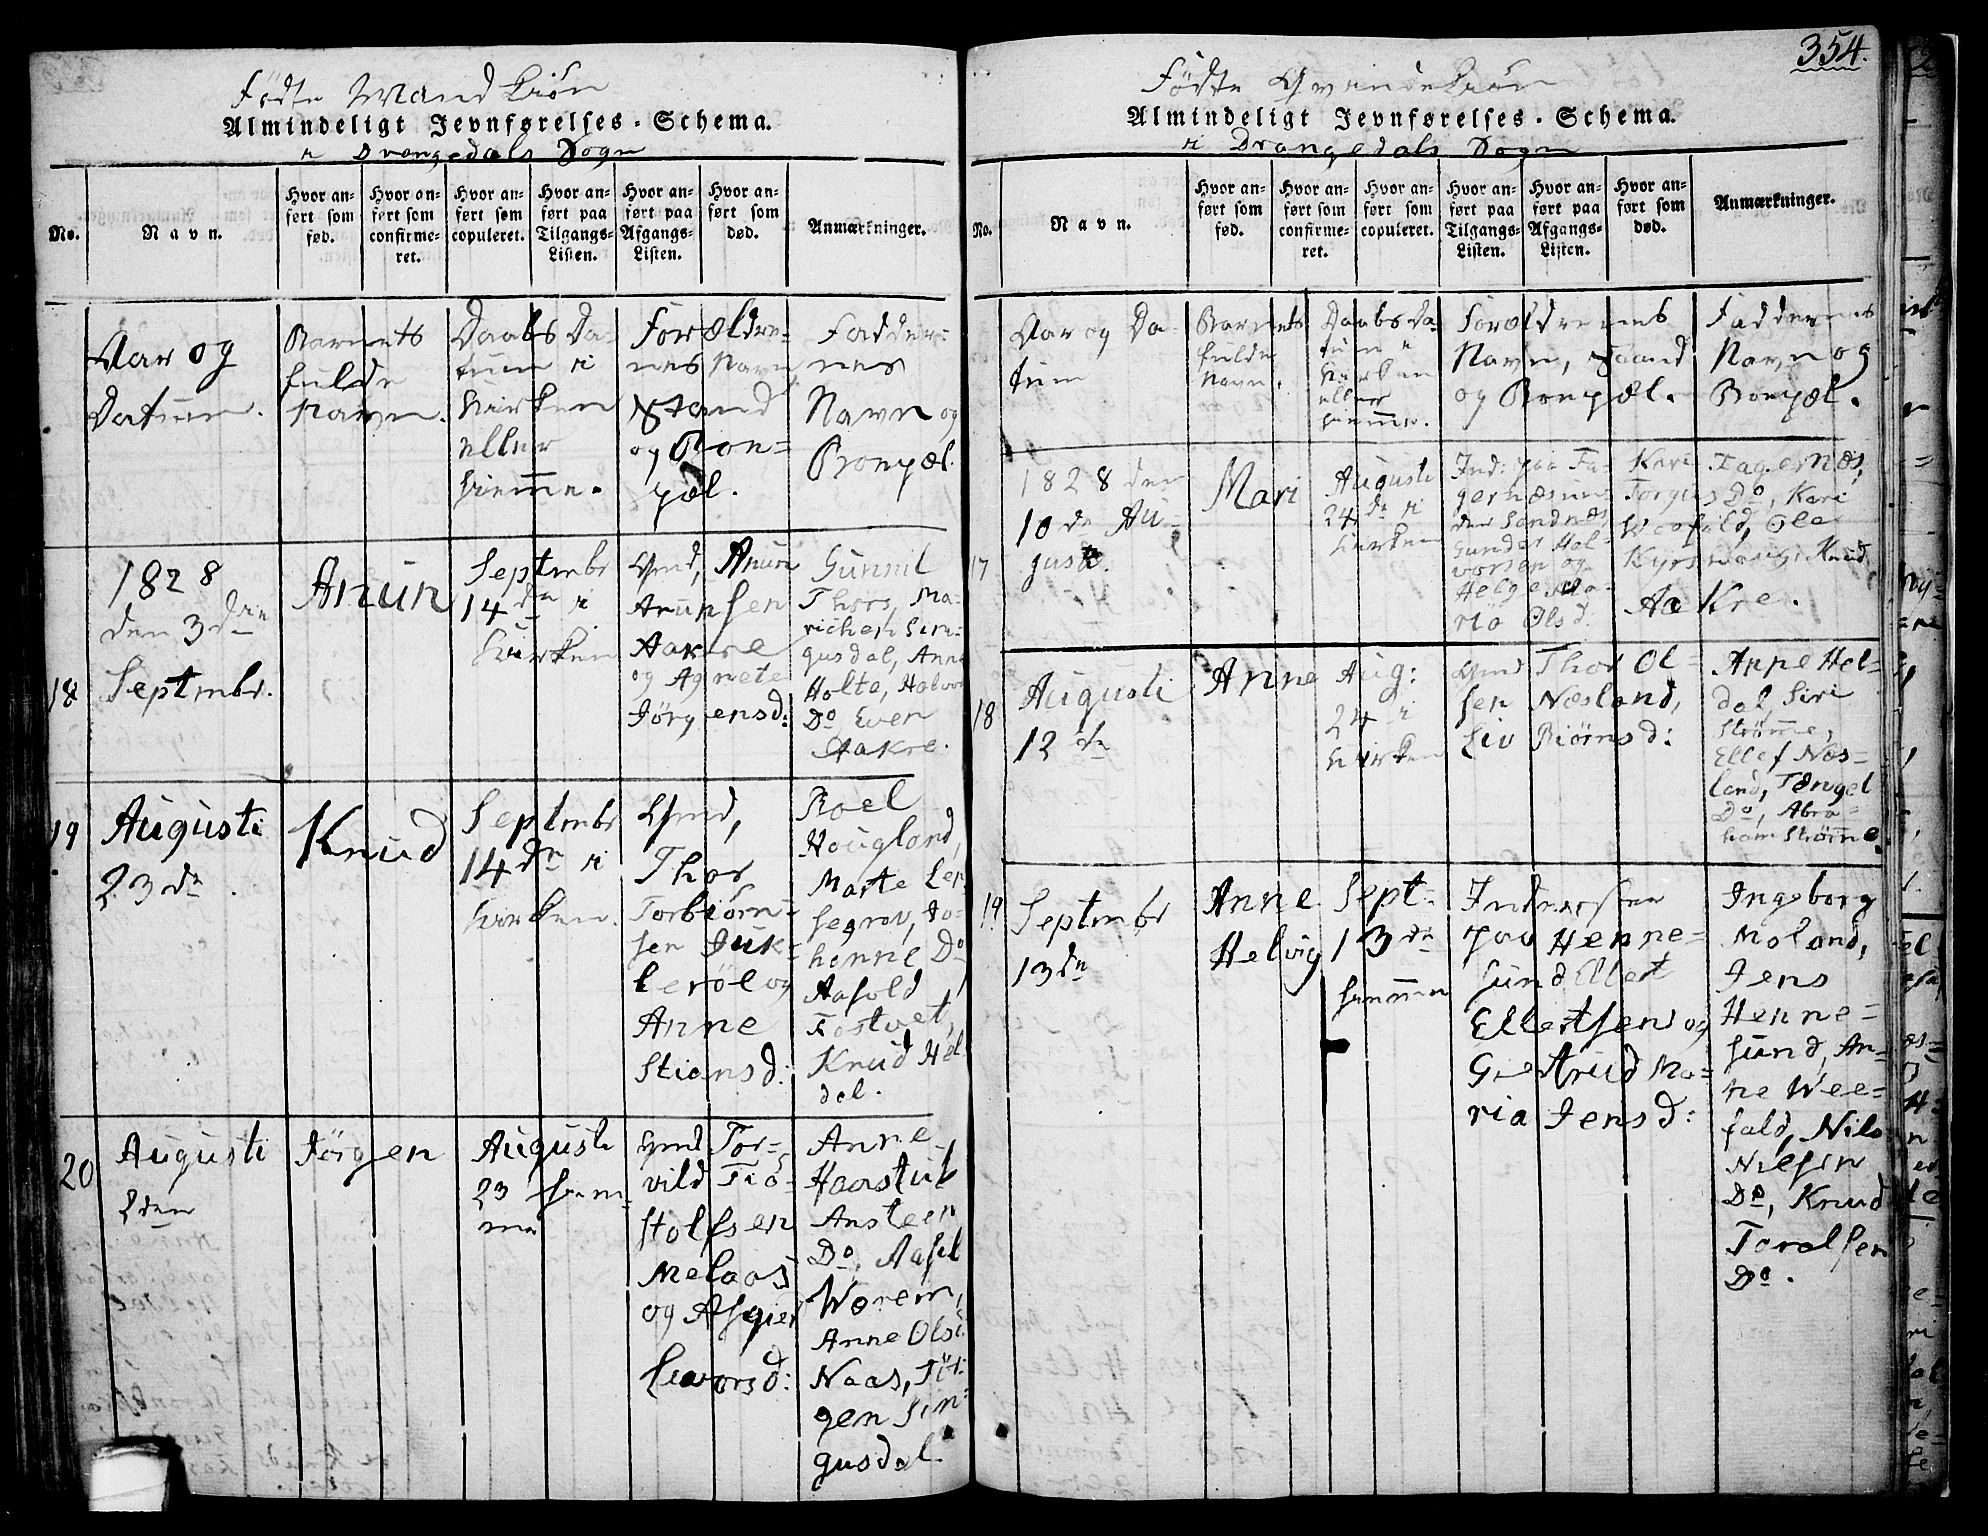 Fødte Mandkiön
Almindeligt Jevnførelses-Schema.
i Drangedals Sogn
No.
Navn.
Hvor anført som fød.
Hvor anført som confirmeret.
Hvor anført som copuleret.
Hvor anført paa Tilgangs-Listen.
Hvor anført paa Afgangs-Listen.
Hvor anført som død.
Anmærkninger.
Aar og
Datum.
Barnets
fulde
Navn.
Daabs Da-
tum i
Kirken
eller
hiemme.
Forældre-
nes Navn,
Stand
og Bon-
pæl.
Fadder-
nes
Navn og
Bonpæl.
18
1828
den 3den
Septembr.
Anun
Septmbr
14de i
Kirken
Gmd, Anun
Arunsen
Aakre
og Agnete
Jörgensd:
Gunnil
Thors, Ma-
richen Sin-
gusdal, Anne
Holte, Halvor
Do Even
Aakre.
19
Augusti
23de.
Knud
Septmbr
14de i
Kirken.
Gmd,
Thor
Torbiörn-
sen Juk-
leröl og
Anne
Stiansd:
Roel
Hougland,
Marte Ler-
segrov, Jo-
hanne Do
Aasold
Tostvet,
Knud Hel-
dal.
20
Augusti
2den
Jörgen
Augusti
23 hiem-
me
Gmd Tor-
vild Tiö-
stolfsen
Melaas
og Asgier
Levorsd:
Anne
Haastul
Ansteen
Do, Aasil
Worem,
Anne Olsd
Naas, Jör-
gen Sin-
gusdal.
354.
Fødte Qvindekiön
Almindeligt Jevnførelses-Schema.
i Drangedals Sogn
No.
Navn.
Hvor anført som fød.
Hvor anført som confirmeret.
Hvor anført som copuleret.
Hvor anført paa Tilgangs-Listen.
Hvor anført paa Afgangs-Listen.
Hvor anført som død.
Anmærkninger.
Aar og Da-
tum
Barnets
fulde
Navn.
Daabs Da-
tum i
Kirken
eller
hiemme.
Forældrenes
Navn, Stand
og Bonpæl.
Faddernes
Navn og
Bonpæl.
17
1828 den
10de Au-
gusti.
Mari
Augusti
24de i
Kirken
Ind: paa Fa-
gernæs un-
der Sandnæs
Gunder Hal-
vorsen og
Helge Ma-
ria Olsd.
Kari Fagernæs,
Torgius Do, Kari
Weefald, Ole
Knud
Aakre.
18
Augusti
12de
Anne
Aug:
24 i
Kirken
Gmd Thor Ol-
sen Næsland,
Liv Biörnsd:
Anne Hel-
dal, Siri
Strömme,
Ellef Næs-
land, Tarugel
Do, Abra-
ham Strömme.
19
Septmbr
13de
Anne
Helvig
Sept-
13de
hiemme
Inderssten
paa Henne-
sund Ellert
Ellertsen og
Giertrud Ma-
ria Jensd:
Ingeborg
Moland,
Jens
Henne-
sund, An-
ne Wee-
fald, Nils
Nielsen
Do, Knud
Toralfsen
Do.